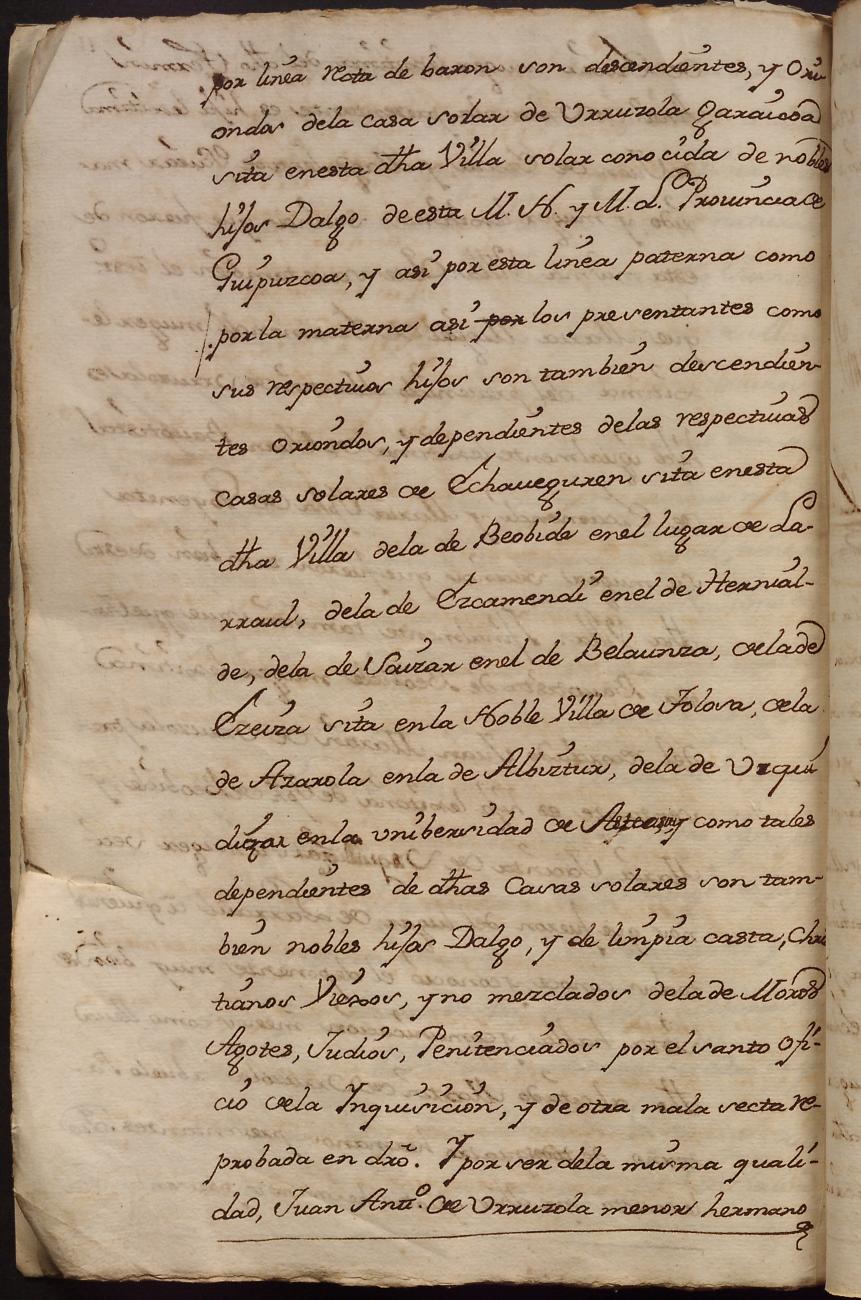 por linea recta de baron son descendientes, y Ori-
ondos dela casa solar de Urruzola Garaicoa
sita enesta dha Villa solar conocida de nobles
hijos Dalgo de esta M. N. y M. L. Provincia de
Guipuzcoa, y asi por esta linea paterna como
por la materna asi por los presentantes como
sus respectivos hijos son tambien descendien-
tes oriondos, y dependientes delas respectivas
casas solares de Echaveguren sita enesta
dha Villa dela de Beobide enel lugar de La-
rraul, dela de Ezcamendi enel de Hernial-
de, dela de Sauzar enel de Belaunza, dela de
Ezeiza sita enla Noble Villa de Tolosa, dela
de Ararola enla de Albiztur, dela de Urqui
digar enla unibersidad de como tales
dependientes de dhas Casas solares son tam-
bien nobles hijos Dalgo, y de limpia casta, Chris
tianos Viejos, y no mezclados dela de Moros
Agotes, Judios, Penitenciados por el santo Ofi-
cio dela Inquisicion, y de otra mala secta re-
probada en dro. Y por ser dela misma quali-
dad, Juan Anto. de Urruzola menor hermano